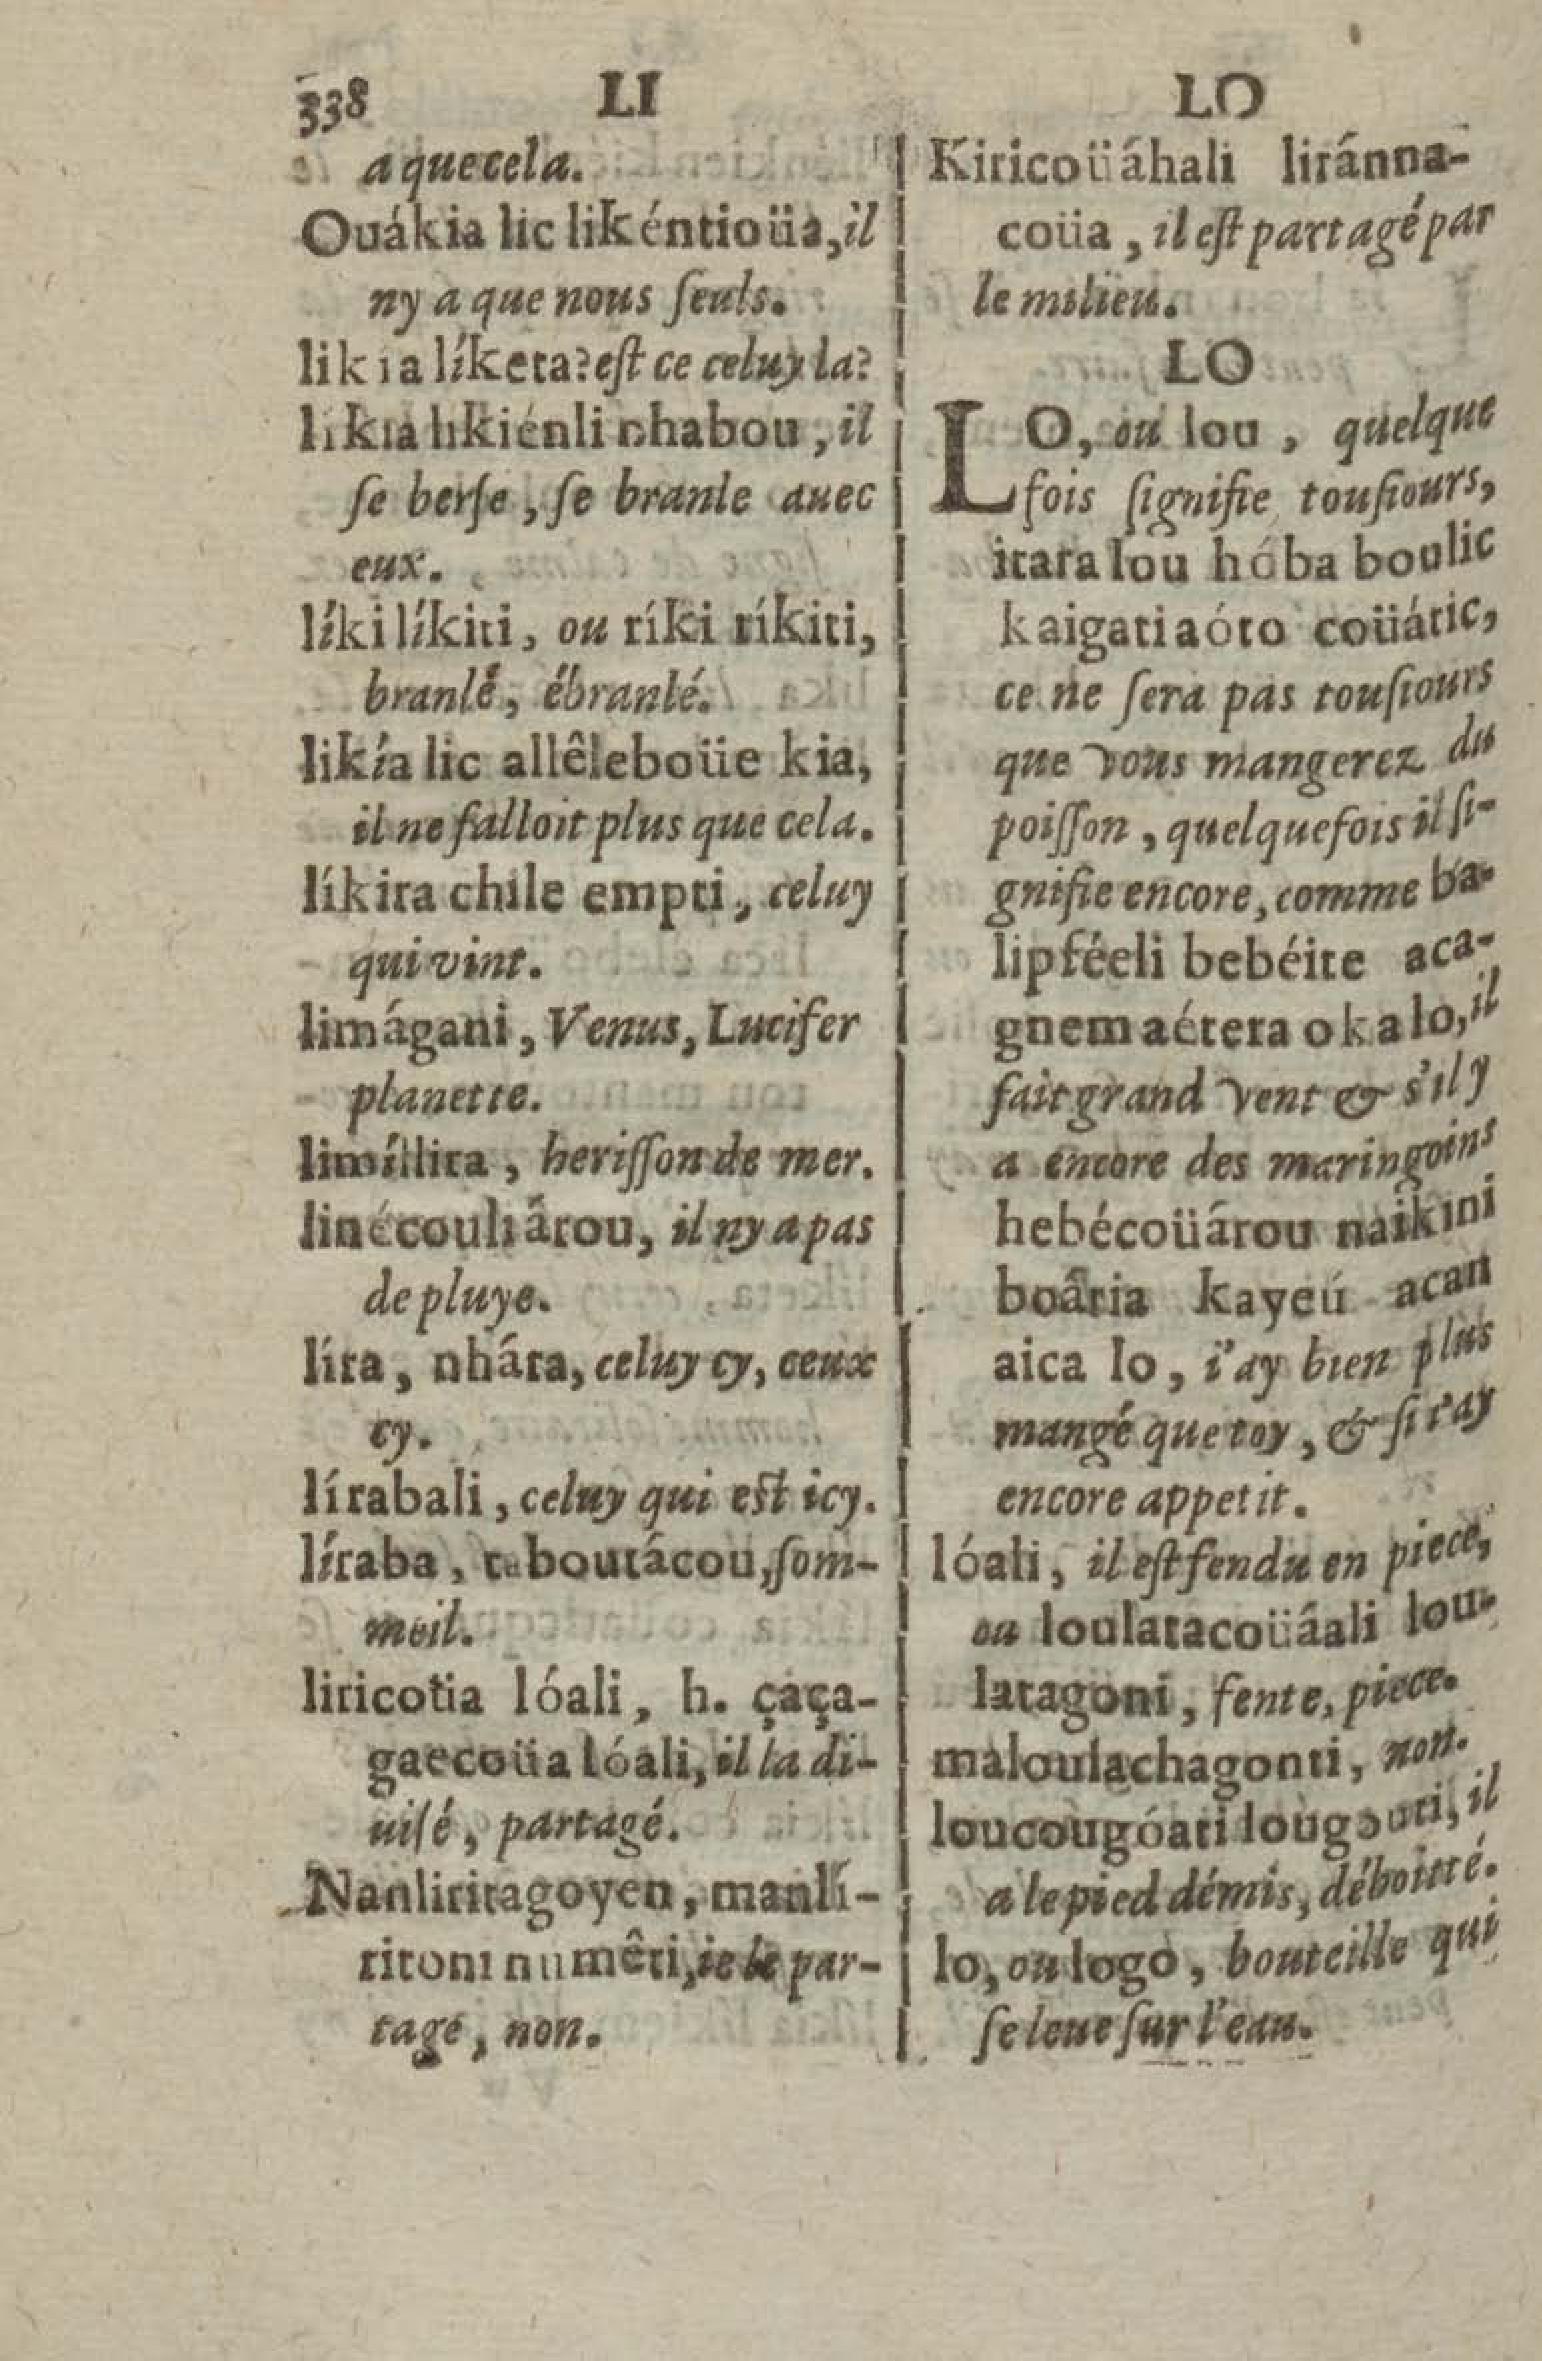 338 LI LO
a que cela.
Ouákia lic likéntioüa, il
ny a que nous ſeuls.
likia líketa? eſt ce celuy la?
likia likiénli nhabou, il
ſe berſe, ſe branle auec
eux.
líki líkiti, ou ríki ríkiti,
branlé, ébranlé.
likía lic allêleboüe kia,
il ne falloit plus que cela.
líkira chile empti, celuy
qui vint.
limágani, Venus, Lucifer
planette.
limíllita, heriſſon de mer.
linécouliârou, il ny a pas
de pluye.
líra, nhára, celuy cy, ceux
cy.
lírabali, celuy qui est icy.
líraba, taboutácou, ſom-
meil.
liricotia lóali, h. çaça-
gaecoüa lóali, il la di-
uiſé, partagé.
Nanliritagoyen, manlí-
ritoni numêti, ie le par-
tage, non.
Kiricoüáhali liránna-
coüa, il eſt partagé par
le milieu.
LO
LO, ou lou, quelque
fois ſignifie touſiours,
itara lou hóba boulic
kaigatiaóto coüátic,
ce ne ſera pas touſiours
que vous mangerez du
poiſſon, quelquefois il ſi-
gnifie encore, comme ba-
lipféeli bebéite aca-
gnem aétera oka lo, il
fait grand vent & s'il y
a encore des maringoins
hebécoüárou naikini
boâria kayeú acan
aica lo, i'ay bien plus
mangé que toy, & ſi i'ay
encore appetit.
lóali, il eſt fendu en piece,
ou loulatacoüáali lou-
latagoni, fente, piece.
maloulachagonti, non.
loucougóati lougouti, il
a le pied démis, déboitté.
lo, ou logo, bouteille qui
ſe leue ſur l'eau.